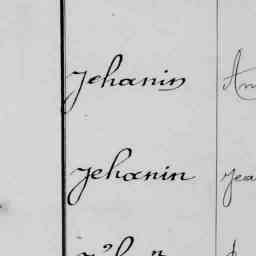 Jehanin
Jehanin Jea